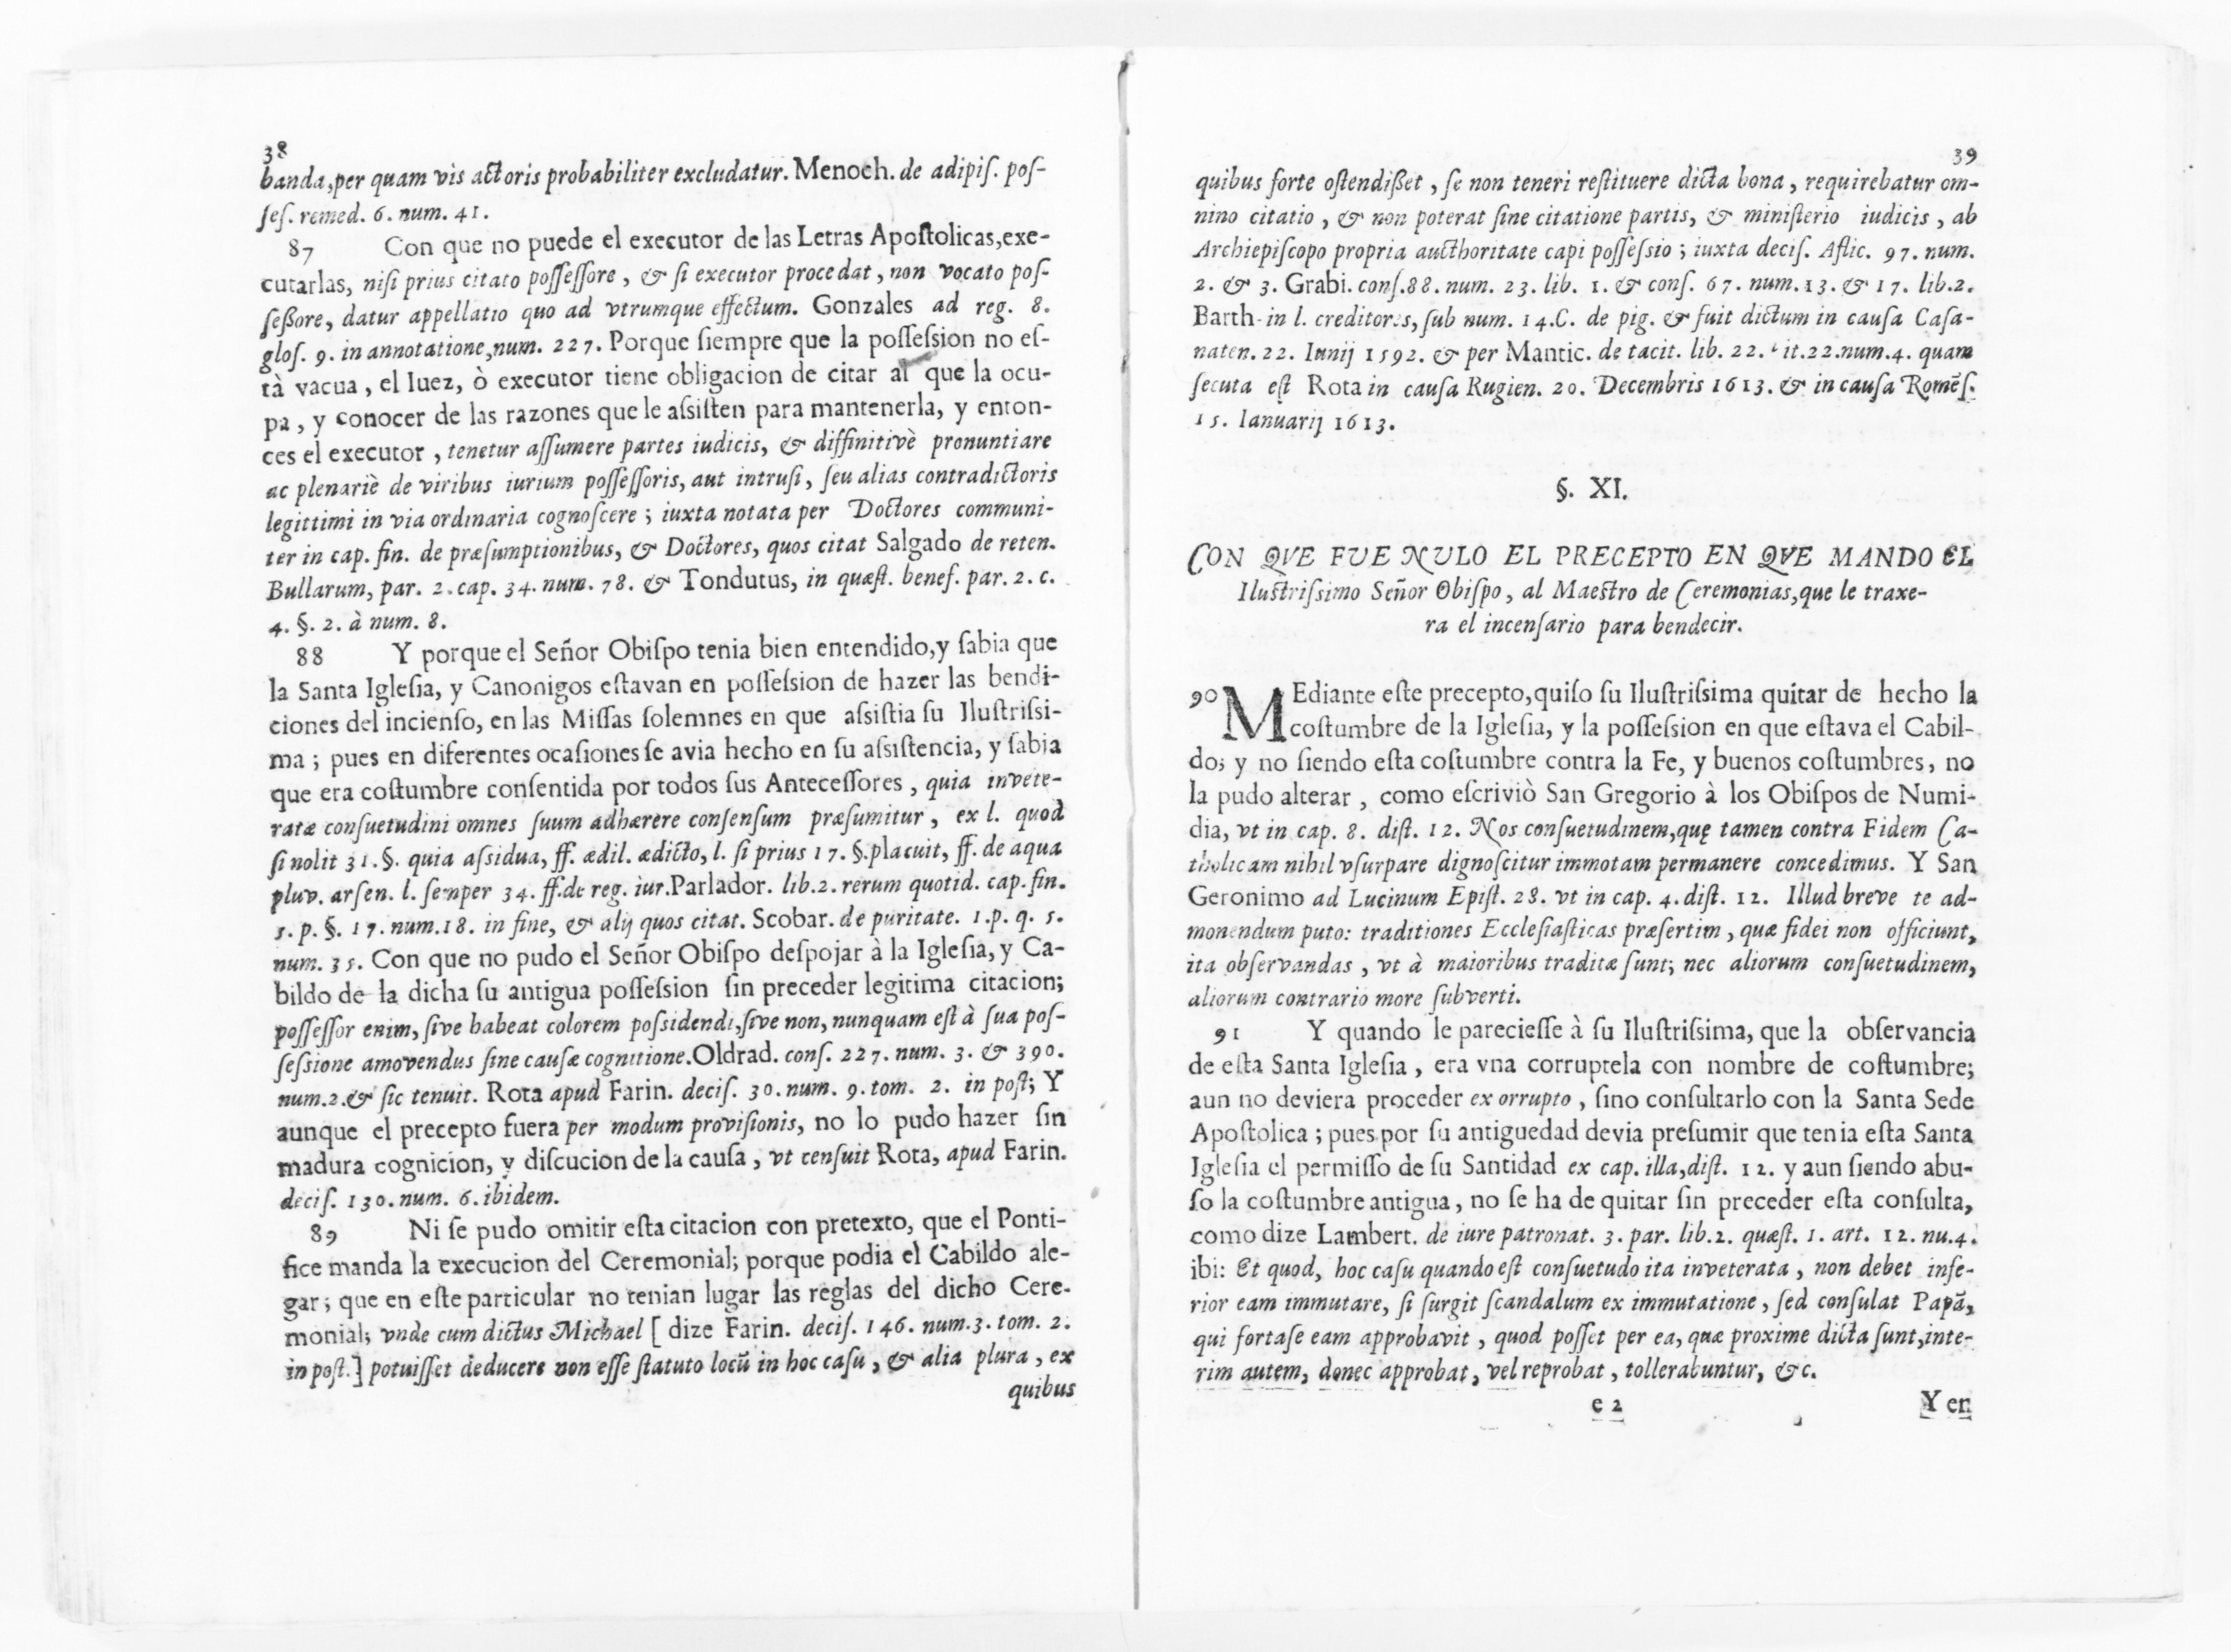 38
banda, per quam vis actoris probabiliter excludatur. Menoch. de adipiſ. poſ-
ſeſ. remed. 6. num. 41.
87 Con que no puede el executor de las Letras Apoſtolicas, exe-
cutarlas, niſi prius citato poſſeſſore, & ſi executor procedat, non vocato poſ-
ſeßore, datur appellatio quo ad vtrumque effectum. Gonzales ad reg. 8.
gloſ. 9. in annotatione, num. 227. Porque ſiempre que la poſſeſsion no eſ-
tà vacua, el Iuez, ò executor tiene obligacion de citar al que la ocu-
pa, y conocer de las razones que le aſsiſten para mantenerla, y enton-
ces el executor, tenetur aſſumere partes iudicis, & diffinitivè pronuntiare
ac plenariè de viribus iurium poſſeſſoris, aut intruſi, ſeu alias contradictoris
legittimi in via ordinaria cognoſcere; iuxta notata per Doctores communi-
ter in cap. fin. de præſumptionibus, & Doctores, quos citat Salgado de reten.
Bullarum, par. 2. cap. 34. num. 78. & Tondutus, in quæſt. benef. par. 2. c.
4. §. 2. à num. 8.
88 Y porque el Señor Obiſpo tenia bien entendido, y ſabia que
la Santa Igleſia, y Canonigos eſtavan en poſſeſsion de hazer las bendi-
ciones del incienſo, en las Miſſas ſolemnes en que aſsiſtia ſu Iluſtriſsi-
ma; pues en diferentes ocaſiones ſe avia hecho en ſu aſsiſtencia, y ſabia
que era coſtumbre conſentida por todos ſus Anteceſſores, quia invete-
ratæ conſuetudini omnes ſuum adhærere conſenſum præſumitur, ex l. quod
ſi nolit 31. §. quia aſsidua, ff. ædil. ædicto, l. ſi prius 17. §. placuit, ff. de aqua
pluv. arſen. l. ſemper 34. ff. de reg. iur. Parlador. lib. 2. rerum quotid. cap. fin.
5. p. §. 17. num. 18. in fine, & alij quos citat. Scobar. de puritate. 1. p. q. 5.
num. 35. Con que no pudo el Señor Obiſpo deſpojar à la Igleſia, y Ca-
bildo de la dicha ſu antigua poſſeſsion ſin preceder legitima citacion;
poſſeſſor enim, ſive habeat colorem poſsidendi, ſive non, nunquam eſt à ſua poſ-
ſeſsione amovendus ſine cauſæ cognitione. Oldrad. conſ. 227. num. 3. & 390.
num. 2. & ſic tenuit. Rota apud Farin. deciſ. 30. num. 9. tom. 2. in poſt; Y
aunque el precepto fuera per modum proviſionis, no lo pudo hazer ſin
madura cognicion, y diſcucion de la cauſa, vt cenſuit Rota, apud Farin.
deciſ. 130. num. 6. ibidem.
89 Ni ſe pudo omitir eſta citacion con pretexto, que el Ponti-
fice manda la execucion del Ceremonial; porque podia el Cabildo ale-
gar; que en eſte particular no tenian lugar las reglas del dicho Cere-
monial; vnde cum dictus Michael [ dize Farin. deciſ. 146. num. 3. tom. 2.
in poſt. ] potuiſſet deducere non eſſe ſtatuto locũ in hoc caſu, & alia plura, ex
quibus
39
quibus forte oſtendißet, ſe non teneri reſtituere dicta bona, requirebatur om-
nino citatio, & non poterat ſine citatione partis, & miniſterio iudicis, ab
Archiepiſcopo propria aucthoritate capi poſſeſsio; iuxta deciſ. Aflic. 97. num.
2. & 3. Grabi. conſ. 88. num. 23. lib. 1. & conſ. 67. num. 13. & 17. lib. 2.
Barth. in l. creditores, ſub num. 14. C. de pig. & fuit dictum in cauſa Caſa-
naten. 22. Iunij 1592. & per Mantic. de tacit. lib. 22. tit. 22. num. 4. quam
ſecuta eſt Rota in cauſa Rugien. 20. Decembris 1613. & in cauſa Romẽſ.
15. Ianuarij 1613.
§. XI.
CON QVE FUE NULO EL PRECEPTO EN QVE MANDO EL
Iluſtriſsimo Señor Obiſpo, al Maeſtro de Ceremonias, que le traxe-
ra el incenſario para bendecir.
90 MEdiante eſte precepto, quiſo ſu Iluſtriſsima quitar de hecho la
coſtumbre de la Igleſia, y la poſſeſsion en que eſtava el Cabil-
do; y no ſiendo eſta coſtumbre contra la Fe, y buenos coſtumbres, no
la pudo alterar, como eſcriviò San Gregorio à los Obiſpos de Numi-
dia, vt in cap. 8. diſt. 12. Nos conſuetudinem, quę tamen contra Fidem Ca-
tholicam nihil vſurpare dignoſcitur immotam permanere concedimus. Y San
Geronimo ad Lucinum Epiſt. 28. vt in cap. 4. diſt. 12. Illud breve te ad-
monendum puto: traditiones Eccleſiaſticas præſertim, quæ fidei non officiunt,
ita obſervandas, vt à maioribus traditæ ſunt; nec aliorum conſuetudinem,
aliorum contrario more ſubverti.
91 Y quando le pareciesſe à ſu Iluſtriſsima, que la obſervancia
de eſta Santa Igleſia, era vna corruptela con nombre de coſtumbre;
aun no deviera proceder ex orrupto, ſino conſultarlo con la Santa Sede
Apoſtolica; pues por ſu antiguedad devia preſumir que tenia eſta Santa
Igleſia el permiſſo de ſu Santidad ex cap. illa, diſt. 12. y aun ſiendo abu-
ſo la coſtumbre antigua, no ſe ha de quitar ſin preceder eſta conſulta,
como dize Lambert. de iure patronat. 3. par. lib. 2. quæſt. 1. art. 12. nu. 4.
ibi: Et quod, hoc caſu quando eſt conſuetudo ita inveterata, non debet infe-
rior eam immutare, ſi ſurgit ſcandalum ex immutatione, ſed conſulat Papã,
qui fortaſe eam approbavit, quod poſſet per ea, quæ proxime dicta ſunt, inte-
rim autem, donec approbat, vel reprobat, tollerabuntur, &c.
e 2 Y en